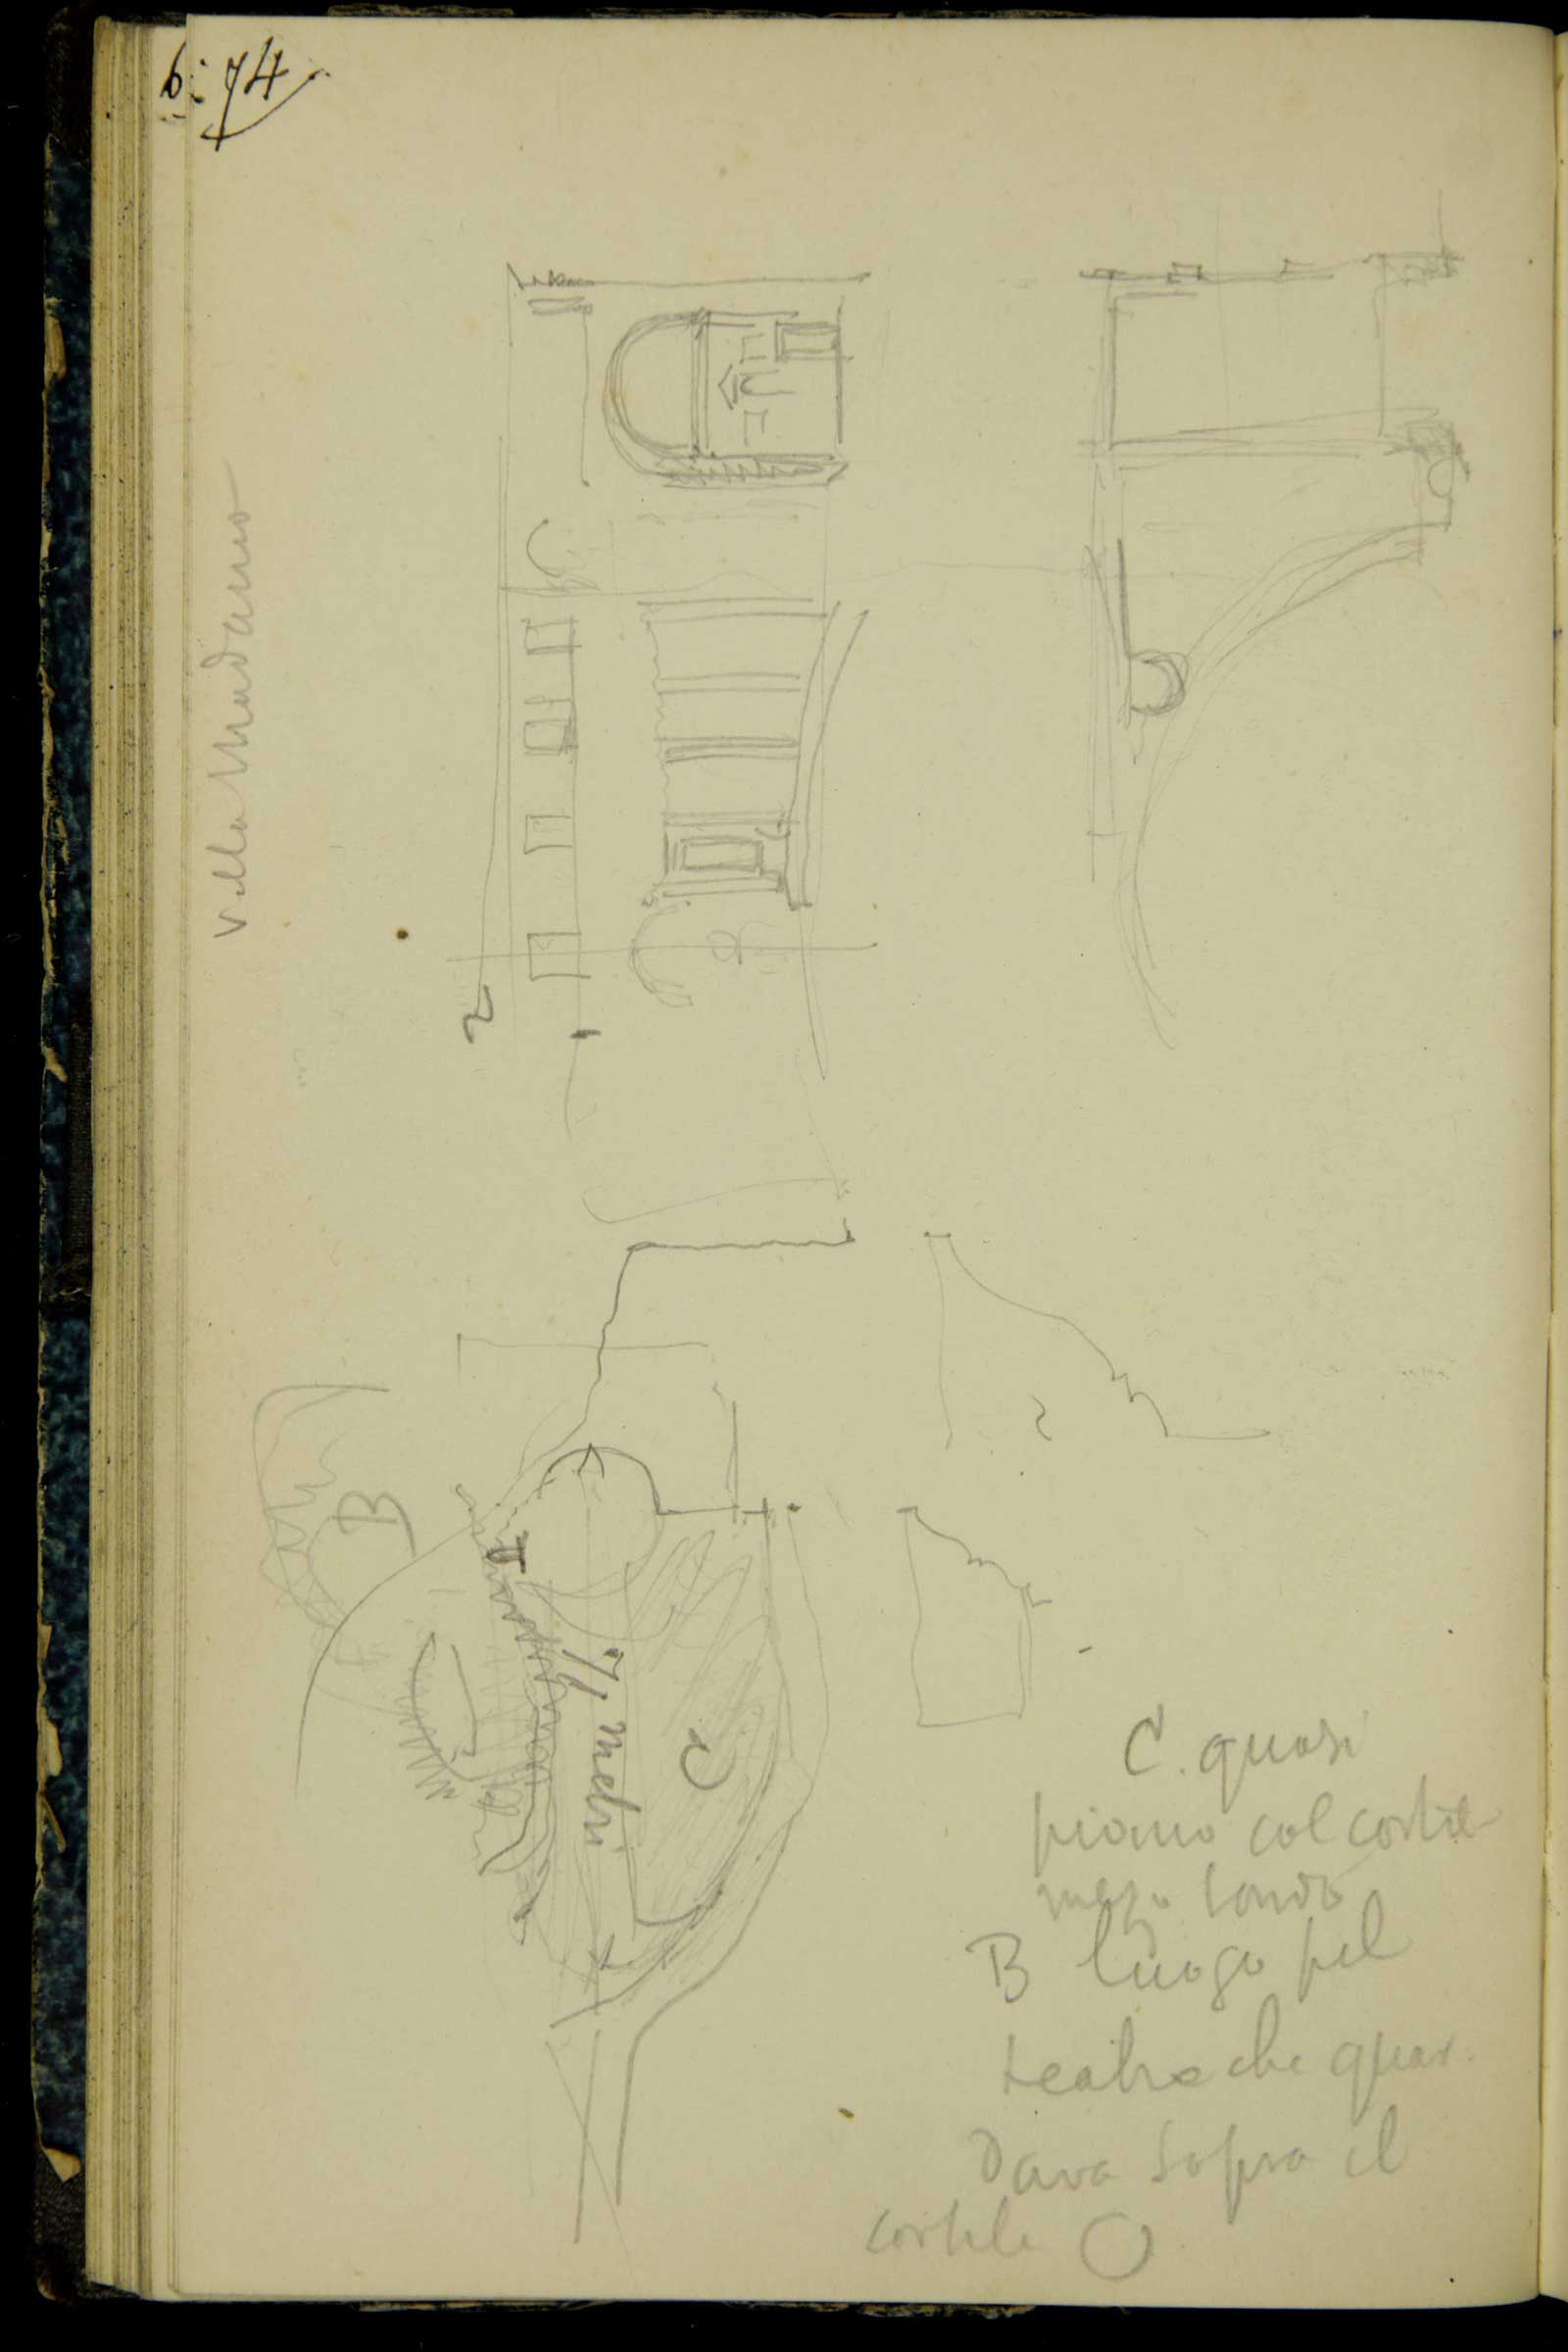 b: 74
villa Madama
B
C
7 metri
C. quasi
piano col cortile
mezo tondo
B luogo pel
teatro che guar.
dava sopra il
cortile